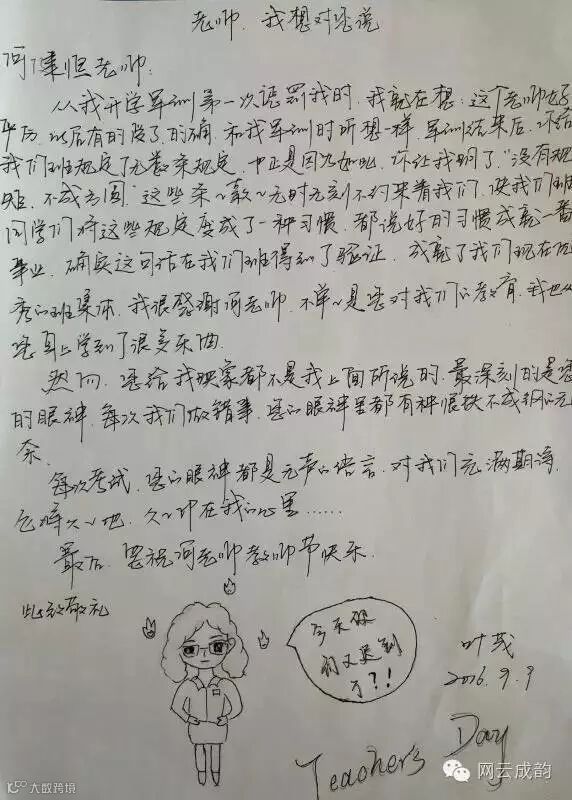 老师，我想对您说
何老师：
从我开学军训第一次惩罚我时，我就在想：这个老师也太
严厉，以后有的受了的确，和我军训时所想一样，军训结束后，你给
我们班规定了无数条规定，也正是因为如此，你让我明了“没有规
矩，不成方圆”这些条条款款无时无刻不约束着我们，使我们班
同学们将这些规定变成了一种习惯，都说好的习惯成就一番
事业，确实这句话在我们班得到了验证，成就了我们现在优
秀的班集体，我很感谢何老师，不单单是您对我们的教育，我也从
您身上学到了很多东西。
然而，您给我映象都不是我上面所说的，最深刻的是您
的眼神，每次我们做错事，您的眼神里都有种恨铁不成钢的无
奈。
每次考试，您的眼神都是无声的语言，对我们充满期待，
它将久久地，久久印在我的心里……
最后，要祝何老师教师节快乐。
此致敬礼
今天你
们又迟到
了？！
叶
2016.9.9
Teacher's Day
网云成韵
大数跨境